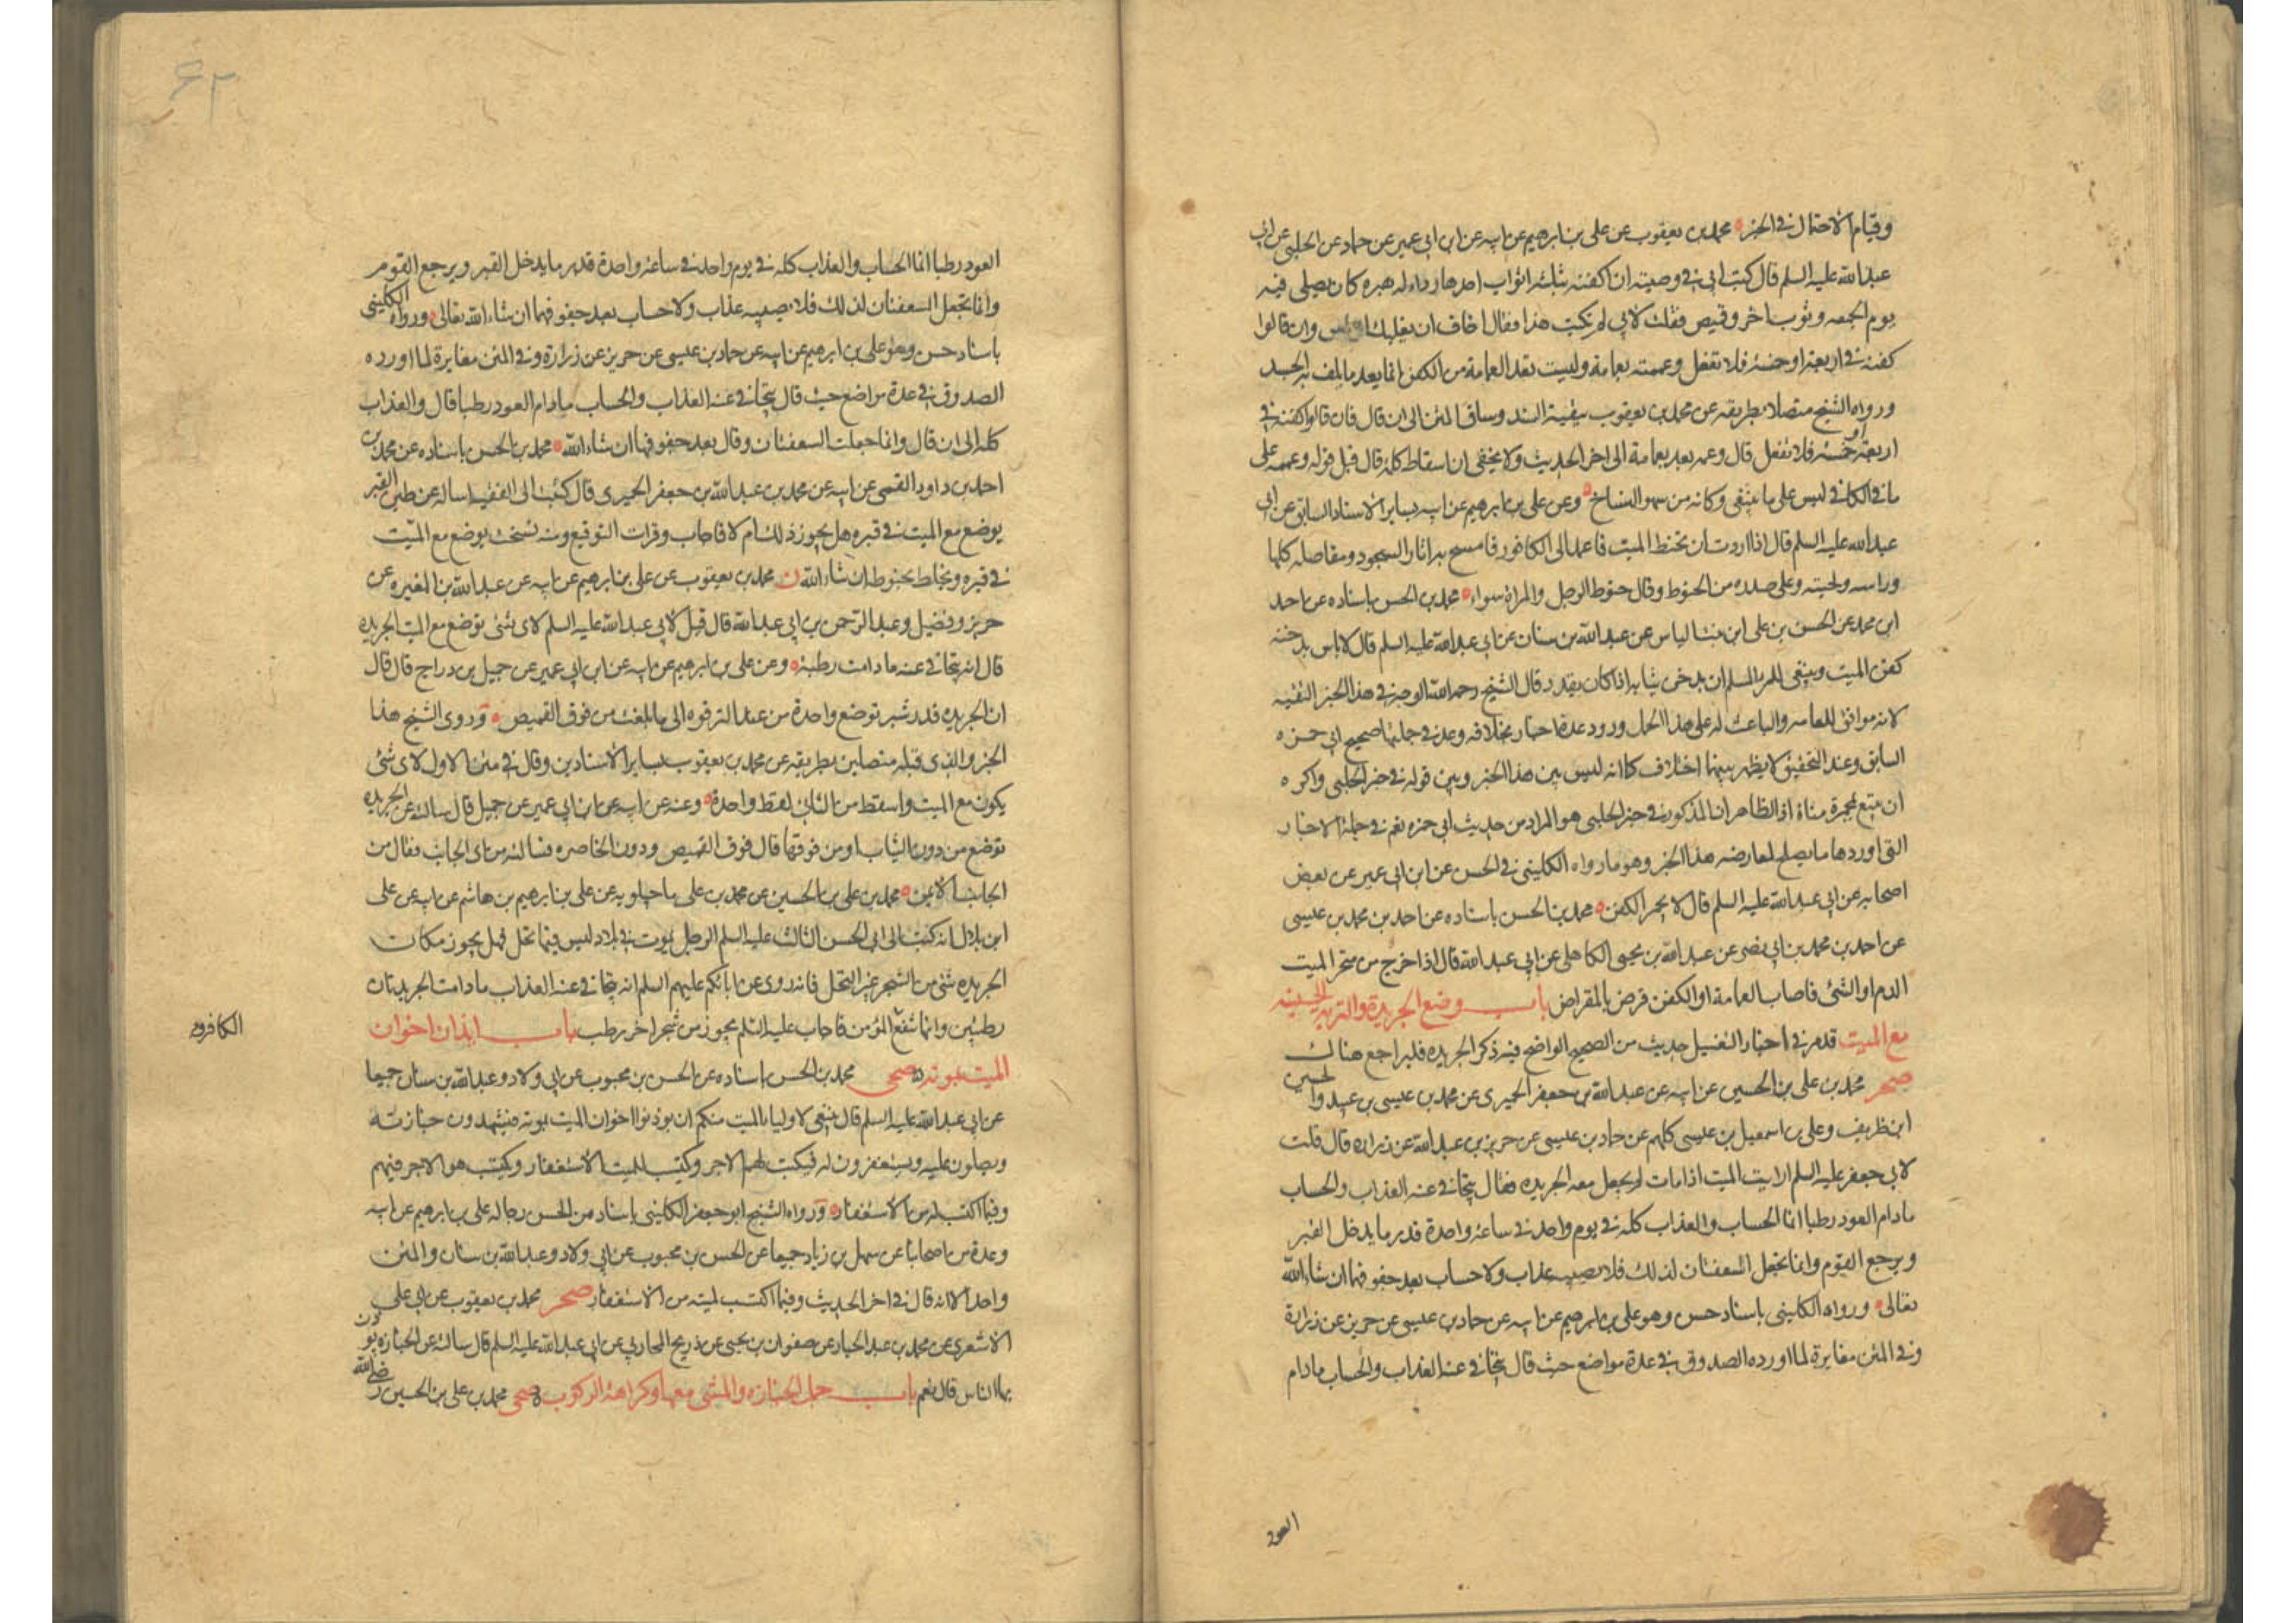 وقيام الاحتمال في الخبر محمد بن يعقوب عن علي بن ابرهيم عن ابيه عن ابن ابي عمير عن حماد عن الحلبي عن ابي
عبد الله عليه السلم قال كتب ابي في وصيته ان اكفنه بثلثه اثواب احدها رداء له حبره كان يصلي فيه
يوم الجمعه وثوب اخر وقميص فقلت لابي لم تكتب هذا فقال اخاف ان يغلبك الناس وان قالوا
كفنه في اربعة او خمسة فلا تفعل وعممته بعمامة وليست تعد العمامة من الكفن انما يعد ما يلف به الجسد
ورواه الشيخ متصلا بطريقه عن محمد بن يعقوب ببقية السند وساق المتن الى ان قال فان قالوا كفنه في
اربعة او خمسة فلا تفعل قال وعممه بعد بعمامة الى اخر الحديث ولا يخفى ان اسقاط كلمة قال قبل قوله وعممه على
ما في الكافي ليس على ما ينبغي وكانه من سهو النساخ وعن علي بن ابرهيم عن ابيه بساير الاسناد السابق عن ابي
عبد الله عليه السلم قال اذا اردت ان تحنط الميت فاعمد الى الكافور فامسح به اثار السجود ومفاصله كلها
وراسه ولحيته وعلى صدره من الحنوط وقال حنوط الرجل والمراة سواء محمد بن الحسن باسناده عن احمد
ابن محمد عن الحسن بن علي ابن بنت الياس عن عبد الله بن سنان عن ابي عبد الله عليه السلم قال لا باس بدخنة
كفن الميت وينبغي للمرء المسلم ان يدخن ثيابه اذا كان يقدر قال الشيخ رحمه الله الوجه في هذا الخبر التقيه
لانه موافق للعامه والباعث له على هذا الحمل ورود عدة اخبار بخلافه وعد في جملتها صحيح ابي حمزه
السابق وعند التحقيق لا يظهر بينهما اختلاف كما انه ليس بين هذا الخبر وبين قوله في خبر الحلبي واكره
ان يتبع بمجمرة منافاة اذ الظاهر ان المذكور في خبر الحلبي هو المراد من حديث ابي حمزه نعم في جملة الاخبار
التي اوردها ما يصلح لمعارضه هذا الخبر وهو ما رواه الكليني في الحسن عن ابن ابي عمير عن بعض
اصحابه عن ابي عبد الله عليه السلم قال لا يجمر الكفن محمد بن الحسن باسناده عن احمد بن محمد بن عيسى
عن احمد بن محمد بن ابي نصر عن عبد الله بن يحيى الكاهلي عن ابي عبد الله قال اذا خرج من منخر الميت
الدم او الشئ فاصاب العمامة او الكفن قرض بالمقراض باب وضع الجريدة والتربه الحسينيه
مع الميت قد مر في اخبار التغسيل حديث من الصحيح الواضح فيه ذكر الجريده فليراجع هناك
صحر محمد بن علي بن الحسين عن ابيه عن عبد الله بن جعفر الحميري عن محمد بن عيسى بن عبيد والحسين
ابن ظريف وعلي بن اسمعيل بن عيسى كلهم عن حماد بن عيسى عن حريز بن عبد الله عن زراره قال قلت
لابي جعفر عليه السلم ارايت الميت اذا مات لم يجعل معه الجريده فقال يتجافى عنه العذاب والحساب
مادام العود رطبا انما الحساب والعذاب كله في يوم واحد في ساعة واحدة قدر ما يدخل القبر
ويرجع القوم وانما تجعل السعفتان لذلك فلا يصيبه عذاب ولا حساب بعد جفوفهما ان شاء الله
تعالى ورواه الكليني باسناد حسن وهو علي بن ابرهيم عن ابيه عن حماد بن عيسى عن حريز عن زرارة
وفي المتن مغايرة لما اورده الصدوق في عدة مواضع حيث قال يتجافى عنه العذاب والحساب مادام
العود
۶۲
العود رطبا انما الحساب والعذاب كله في يوم واحد في ساعة واحدة قدر ما يدخل القبر ويرجع القوم
وانما تجعل السعفتان لذلك فلا يصيبه عذاب ولا حساب بعد جفوفهما ان شاء الله تعالى ورواه الكليني
باسناد حسن وهو علي بن ابرهيم عن ابيه عن حماد بن عيسى عن حريز عن زرارة وفي المتن مغايرة لما اورده
الصدوق في عدة مواضع حيث قال يتجافى عنه العذاب والحساب مادام العود رطبا قال والعذاب
كله الى ان قال وانما جعلت السعفتان وقال بعد جفوفهما ان شاء الله محمد بن الحسن باسناده عن محمد بن
احمد بن داود القمي عن ابيه عن محمد بن عبد الله بن جعفر الحميري قال كتبت الى الفقيه اساله عن طين القبر
يوضع مع الميت في قبره هل يجوز ذلك ام لا فاجاب وقرات التوقيع ومنه نسخت يوضع مع الميت
في قبره ويخلط بحنوطه ان شاء الله ن محمد بن يعقوب عن علي بن ابرهيم عن ابيه عن عبد الله بن المغيره عن
حريز وفضيل وعبد الرحمن بن ابي عبد الله قال قيل لابي عبد الله عليه السلم لاي شئ توضع مع الميت الجريده
قال انه يتجافى عنه ما دامت رطبة وعن علي بن ابرهيم عن ابيه عن ابن ابي عمير عن جميل بن دراج قال قال
ان الجريده قدر شبر توضع واحدة من عند الترقوه الى ما بلغت من فوق القميص وروى الشيخ هذا
الخبر والذي قبله متصلين بطريقه عن محمد بن يعقوب بساير الاسنادين وقال في متن الاول لاي شئ
يكون مع الميت واسقط من الثاني لفظ واحدة وعنه عن ابيه عن ابن ابي عمير عن جميل قال سالته عن الجريده
توضع من دون الثياب او من فوقها قال فوق القميص ودون الخاصره فسالته من اي الجانب فقال من
الجانب الايمن محمد بن علي بن الحسين عن محمد بن علي ماجيلويه عن علي بن ابرهيم بن هاشم عن ابيه عن علي
ابن بلال انه كتب الى ابي الحسن الثالث عليه السلم الرجل يموت في بلاد ليس فيها نخل فهل يجوز مكان
الجريده شئ من الشجر غير النخل فانه روي عن ابائكم عليهم السلم انه يتجافى عنه العذاب مادامت الجريدتان
رطبتين وانها تنفع المؤمن فاجاب عليه السلم يجوز من شجر اخر رطب باب ايذان اخوان
الميت بموته صحي محمد بن الحسن باسناده عن الحسن بن محبوب عن ابي ولاد وعبد الله بن سنان جميعا
عن ابي عبد الله عليه السلم قال ينبغي لاولياء الميت منكم ان يوذنوا اخوان الميت بموته فيشهدون جنازته
ويصلون عليه ويستغفرون له فيكتب لهم الاجر ويكتب للميت الاستغفار ويكتب هو الاجر فيهم
وفيما اكتسب له من الاستغفار ورواه الشيخ ابو جعفر الكليني باسناد من الحسن رجاله علي بن ابرهيم عن ابيه
وعدة من اصحابنا عن سهل بن زياد جميعا عن الحسن بن محبوب عن ابي ولاد وعبد الله بن سنان والمتن
واحد الا انه قال في اخر الحديث وفيما اكتسب لميته من الاستغفار صحر محمد بن يعقوب عن ابي علي
الاشعري عن محمد بن عبد الجبار عن صفوان بن يحيى عن ذريح المحاربي عن ابي عبد الله عليه السلم قال سالته عن الجنازه يوذن
بها الناس قال نعم باب حمل الجنازه والمشي معها وكراهة الركوب صحي محمد بن علي بن الحسين رضي الله